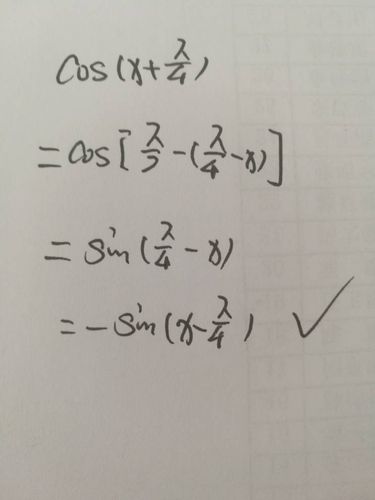 cos(x+π/4)
=cos[π/2-(π/4-x)]
=sin(π/4-x)
=-sin(x-π/4) ✓